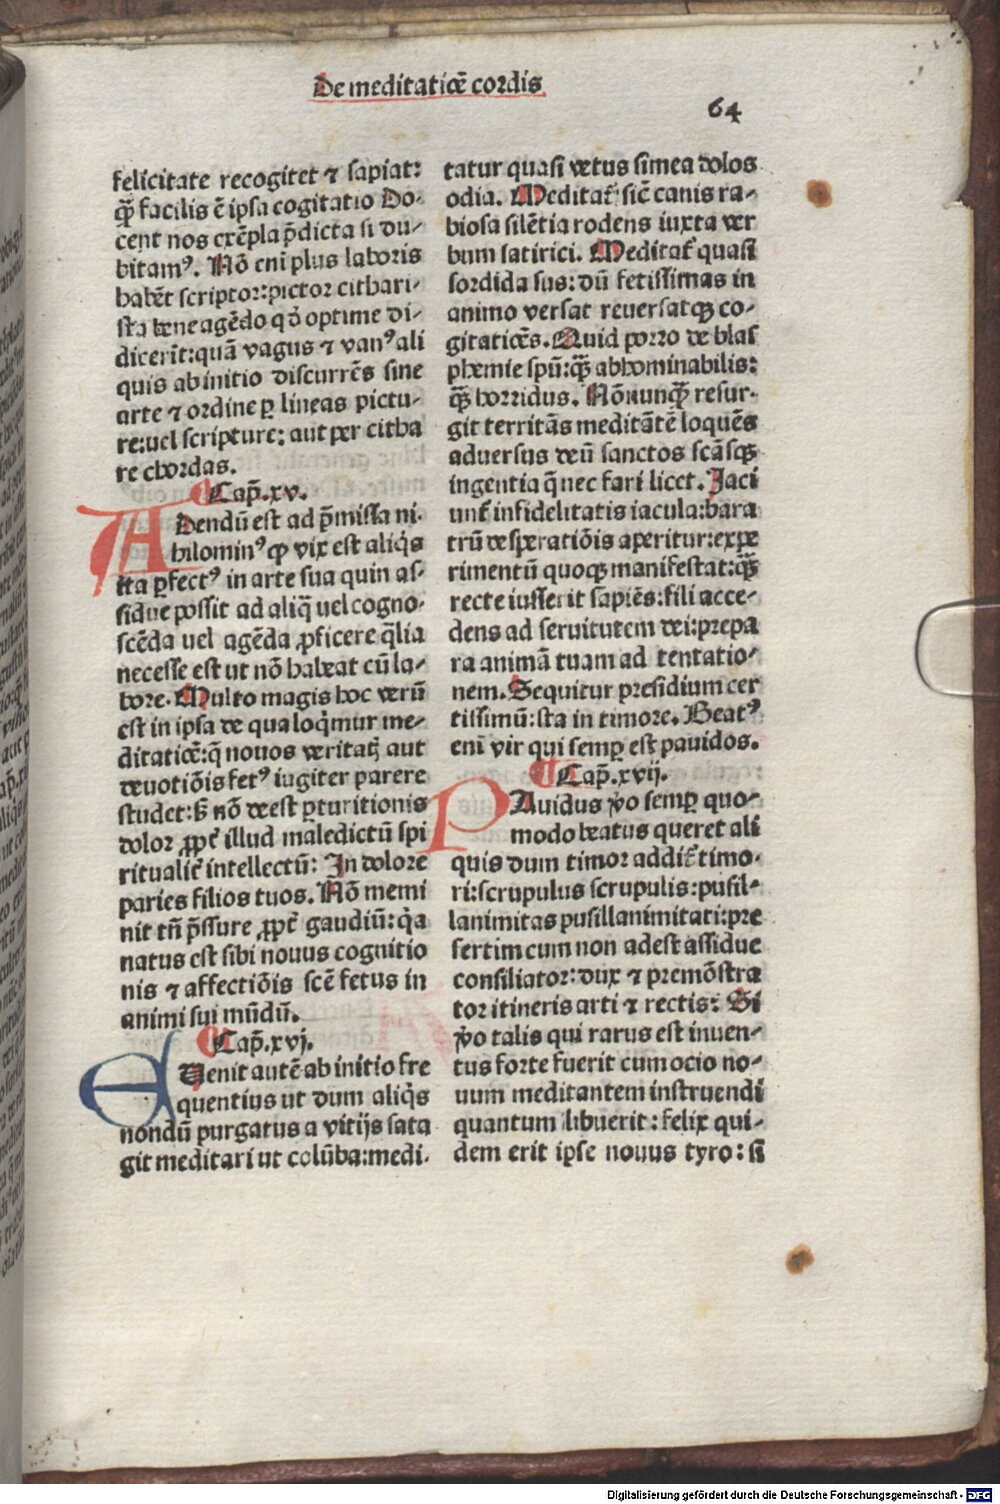 De meditatiõe cordis
64
felicitate recogitet ⁊ sapiat:
qȝ̃ facilis ẽ ipsa cogitatio Do-
cent nos exẽpla p̃dicta si du-
bitamꝰ. Nõ eni plus laboris
habẽt scriptor: pictor cithari-
sta bene agẽdo qď optime di-
dicerit: quã vagus ⁊ vanꝰ ali
quis ab initio discurrẽs sine
arte ⁊ ordine ꝑ lineas pictu-
re: uel scripture: aut per citha
re chordas.
Cap̃.xv.
ADendũ est ad p̃missa ni-
hilominꝰ ꝙ vix est aliq̇s
ita ꝑfectꝰ in arte sua quin as-
sidue possit ad aliq̃ uel cogno-
scẽda uel agẽda ꝓficere q̃lia
necesse est ut nõ habeat cũ la-
bore. Multo magis hoc verũ
est in ipsa de qua loq̇mur me-
ditatiõe: q̃ nouos veritatꝭ aut
deuotiõis fetꝰ iugiter parere
studet: sꝫ nõ deest ꝑturitionis
dolor ꝓpt̃ illud maledictũ spi
ritualit̃ intellectũ: In dolore
paries filios tuos. Nõ memi
nit tñ p̃ssure ꝓpt̃ gaudiũ: q̇a
natus est sibi nouus cognitio
nis ⁊ affectiõis scẽ fetus in
animi sui mũdũ.
Cap̃.xvj.
EUenit autẽ ab initio fre
quentius ut dum aliq̇s
nondũ purgatus a vitijs sata
git meditari ut colũba: medi-
tatur quasi vetus simea dolos
odia. Meditat̃ sic̃ canis ra-
biosa silẽtia rodens iuxta ver
bum satirici. Meditat̃ quasi
sordida sus: dũ fetissimas in
animo versat reuersatqȝ co-
gitatiões. Quid porro de blas
phemie spũ: qȝ̃ abhominabilis:
qȝ̃ horridus. Nõnunqȝ̃ resur-
git territãs meditãtẽ loquẽs
aduersus deũ sanctos scãsqȝ
ingentia q̃ nec fari licet. Jaci
unt̃ infidelitatis iacula: bara
trũ desperatiõis aperitur: expe
rimentũ quoqȝ manifestat: qȝ̃
recte iusserit sapiẽs: fili acce-
dens ad seruitutem dei: prepa
ra animã tuam ad tentatio-
nem. Sequitur presidium cer
tissimũ: sta in timore. Beatꝰ
eni vir qui semꝑ est pauidos.
Cap̃.xvij.
PAuidus ṽo semꝑ quo-
modo beatus queret ali
quis dum timor addit̃ timo-
ri: scrupulus scrupulis: pusil-
lanimitas pusillanimitati: pre
sertim cum non adest assidue
consiliator: dux ⁊ premõstra
tor itineris arti ⁊ rectis: Si
ṽo talis qui rarus est inuen-
tus forte fuerit cum ocio no-
uum meditantem instruendi
quantum libuerit: felix qui-
dem erit ipse nouus tyro: si
Digitalisierung gefördert durch die Deutsche Forschungsgemeinschaft - DFG